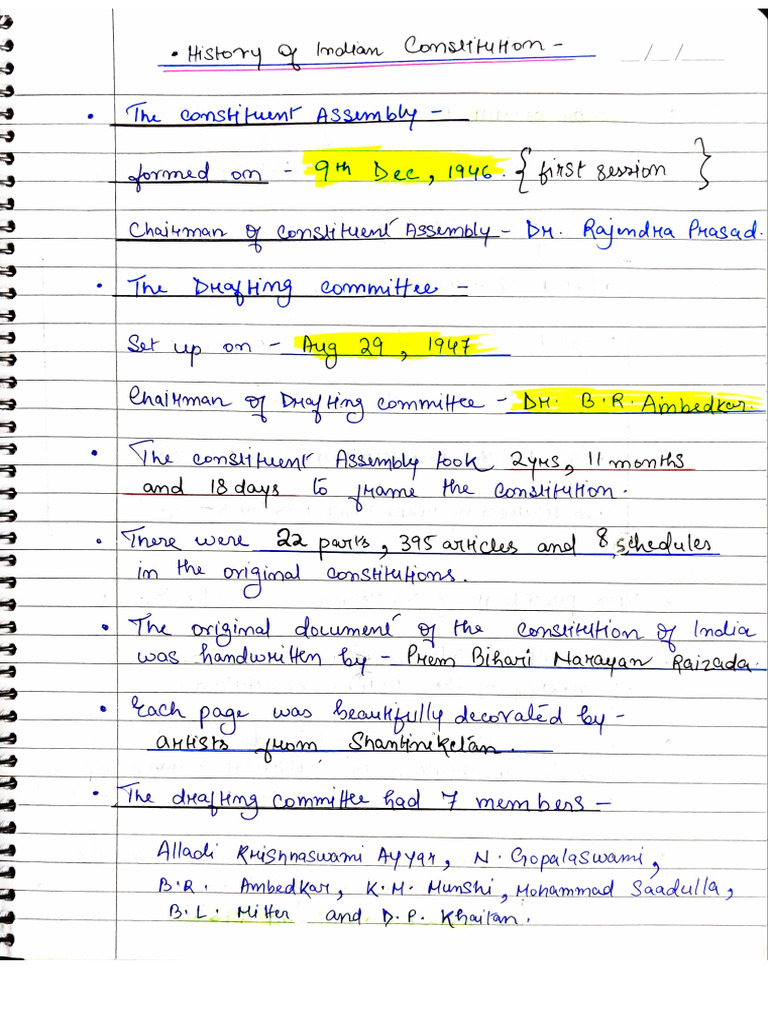 • History of Indian Constitution -
_/_/_
• The constituent Assembly -
formed on - 9th Dec, 1946. { first session }
Chairman of constituent Assembly - Dr. Rajendra Prasad.
• The Drafting committee -
Set up on - Aug 29, 1947
Chairman of Drafting committee - Dr. B.R. Ambedkar.
• The constituent Assembly took 2yrs, 11 months
and 18 days to frame the constitution.
• There were 22 parts, 395 articles and 8 schedules
in the original constitutions.
• The original document of the constitution of India
was handwritten by - Prem Bihari Narayan Raizada.
• Each page was beautifully decorated by -
artists from Shantiniketan.
• The drafting committee had 7 members -
Alladi Krishnaswami Ayyar, N. Gopalaswami,
B.R. Ambedkar, K.M. Munshi, Mohammad Saadulla,
B.L. Mitter and D.P. Khaitan.